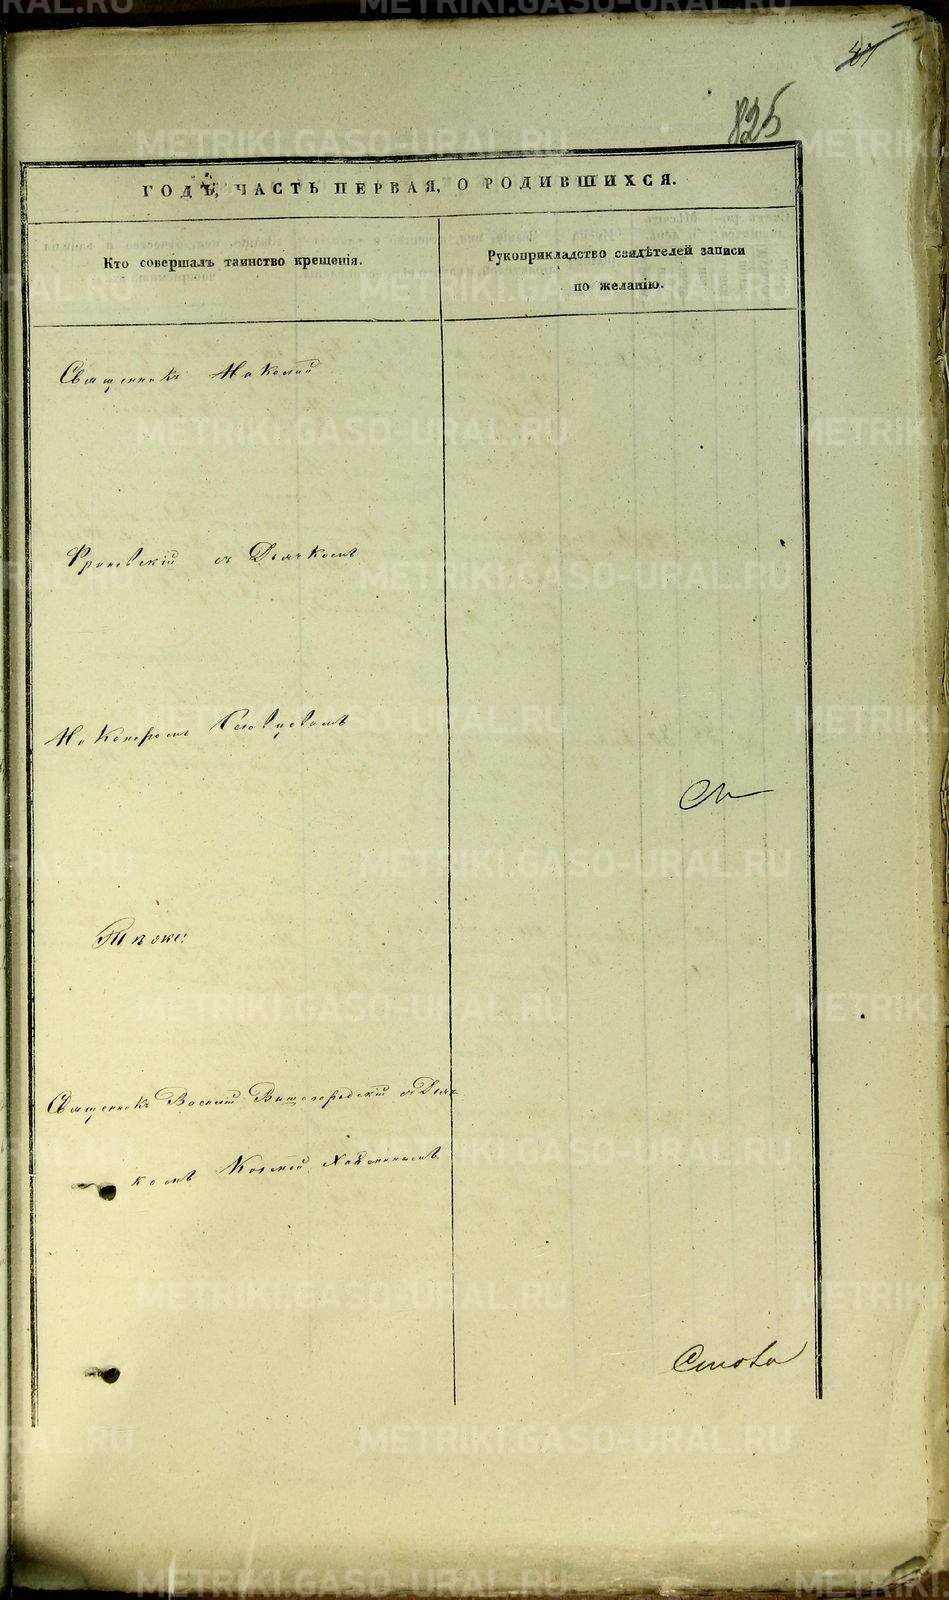 825
ГОДЪ, ЧАСТЬ ПЕРВАЯ, О РОДИВШИХСЯ.
Кто совершалъ таинство крещенія.
Рукоприкладство свидѣтелей записи
по желанію.
Священникъ Николай
Фроловскій съ Дьячкомъ
Никаноромъ
Тѣ же:
Священникъ Василій Вышегородскій съ Дьяч
комъ Козмой
METRIKI.GASO-URAL.RU